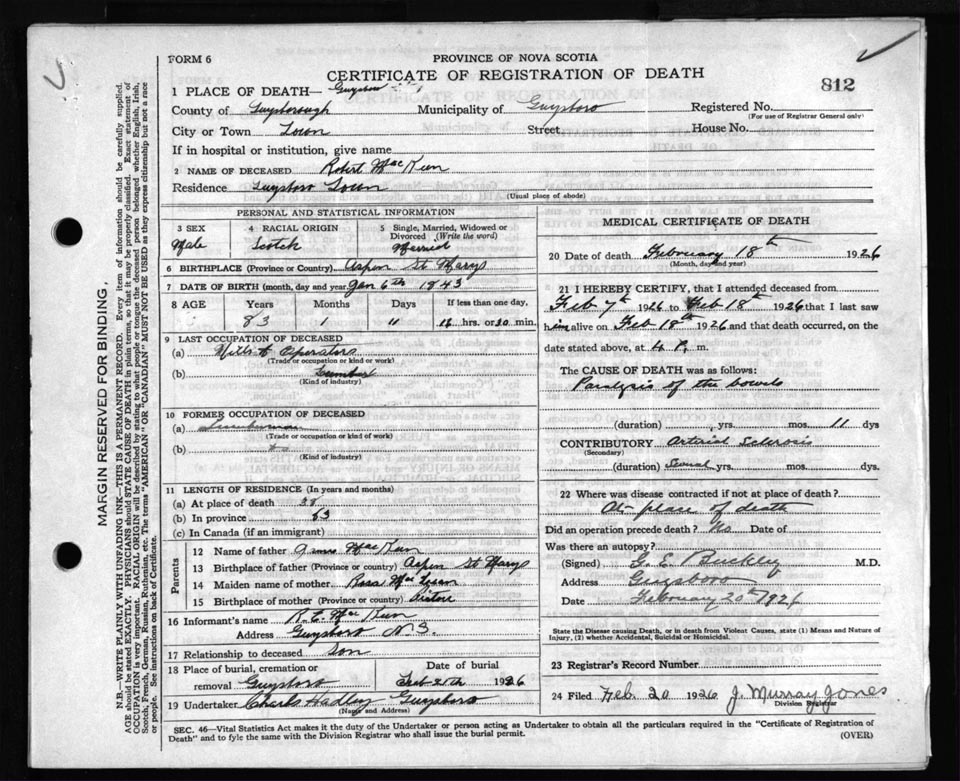 FORM 6
PROVINCE OF NOVA SCOTIA
CERTIFICATE OF REGISTRATION OF DEATH
812
1 PLACE OF DEATH—
County of Guysborough Municipality of Guysboro Registered No.
(For use of Registrar General only)
City or Town Town Street House No.
If in hospital or institution, give name
2 NAME OF DECEASED Robert MacKeen
Residence Guysboro Town
(Usual place of abode)
PERSONAL AND STATISTICAL INFORMATION
3 SEX 4 RACIAL ORIGIN 5 Single, Married, Widowed or Divorced (Write the word)
Male Scotch Married
6 BIRTHPLACE (Province or Country) Aspen St Marys
7 DATE OF BIRTH (month, day and year) Jan 6th 1843
8 AGE Years Months Days If less than one day,
83 1 11 hrs. or min.
9 LAST OCCUPATION OF DECEASED
(a) Mill Operator
(Trade or occupation or kind or work)
(b) Lumber
(Kind of industry)
10 FORMER OCCUPATION OF DECEASED
(a) Lumberman
(Trade or occupation or kind of work)
(b)
(Kind of industry)
11 LENGTH OF RESIDENCE (In years and months)
(a) At place of death 38
(b) In province 83
(c) In Canada (if an immigrant)
Parents
12 Name of father MacKeen
13 Birthplace of father (Province or country) Aspen St Marys
14 Maiden name of mother
15 Birthplace of mother (Province or country) Pictou
16 Informant's name R. E. MacKeen
Address Guysboro N.S.
17 Relationship to deceased Son
18 Place of burial, cremation or Date of burial
removal Guysboro Feb 21th 1926
19 Undertaker Charls Hadley Guysboro
(Name and Address)
MEDICAL CERTIFICATE OF DEATH
20 Date of death February 18th 1926
(Month, day and year)
21 I HEREBY CERTIFY, that I attended deceased from
Feb 7th 1926 to Feb 18th 1926 that I last saw
him alive on Feb 18th 1926 and that death occurred, on the
date stated above, at 4 P. m.
The CAUSE OF DEATH was as follows:
Paralysis of the bowels
(duration) yrs. mos. 11 dys
CONTRIBUTORY Arterial Sclerosis
(Secondary)
(duration) Several yrs. mos. dys.
22 Where was disease contracted if not at place of death?
At place of death
Did an operation precede death? No Date of
Was there an autopsy?
(Signed) G. E. Buckley M.D.
Address Guysboro
Date February 20th 1926
State the Disease causing Death, or in death from Violent Causes, state (1) Means and Nature of
Injury, (2) whether Accidental, Suicidal or Homicidal.
23 Registrar's Record Number
24 Filed Feb. 20 1926 J. Murray Jones
Division Registrar
SEC. 46—Vital Statistics Act makes it the duty of the Undertaker or person acting as Undertaker to obtain all the particulars required in the "Certificate of Registration of
Death" and to fyle the same with the Division Registrar who shall issue the burial permit.
(OVER)
MARGIN RESERVED FOR BINDING,
N.B.—WRITE PLAINLY WITH UNFADING INK—THIS IS A PERMANENT RECORD. Every item of information should be carefully supplied.
AGE should be stated EXACTLY. PHYSICIANS should STATE CAUSE OF DEATH in plain terms, so that it may be properly classified. Exact statement of
OCCUPATION is very important. RACIAL ORIGIN will be described by stating to what people or tongue the deceased person belonged whether English, Irish,
Scotch, French, German, Russian, Ruthenian, etc. The terms "AMERICAN" OR "CANADIAN" MUST NOT BE USED as they express citizenship but not a race
or people. See instructions on back of Certificate.